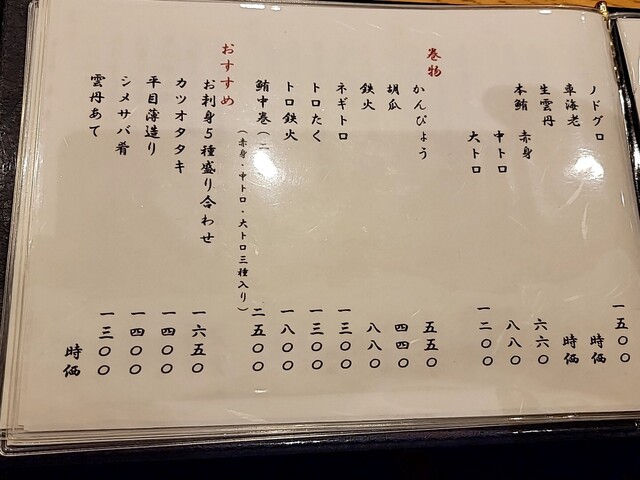 ノドグロ 一五〇〇
車海老 時価
生雲丹 時価
本鮪 赤身 六六〇
中トロ 八八〇
大トロ 一二〇〇
巻物
かんぴょう 五五〇
胡瓜 四四〇
鉄火 八八〇
ネギトロ 一三〇〇
トロたく 一三〇〇
トロ鉄火 一八〇〇
鮪中巻 二五〇〇
(赤身・中トロ・大トロ三種入り)
おすすめ
お刺身5種盛り合わせ 一六五〇
カツオタタキ 一四〇〇
平目薄造り 一四〇〇
シメサバ肴 一三〇〇
雲丹あて 時価